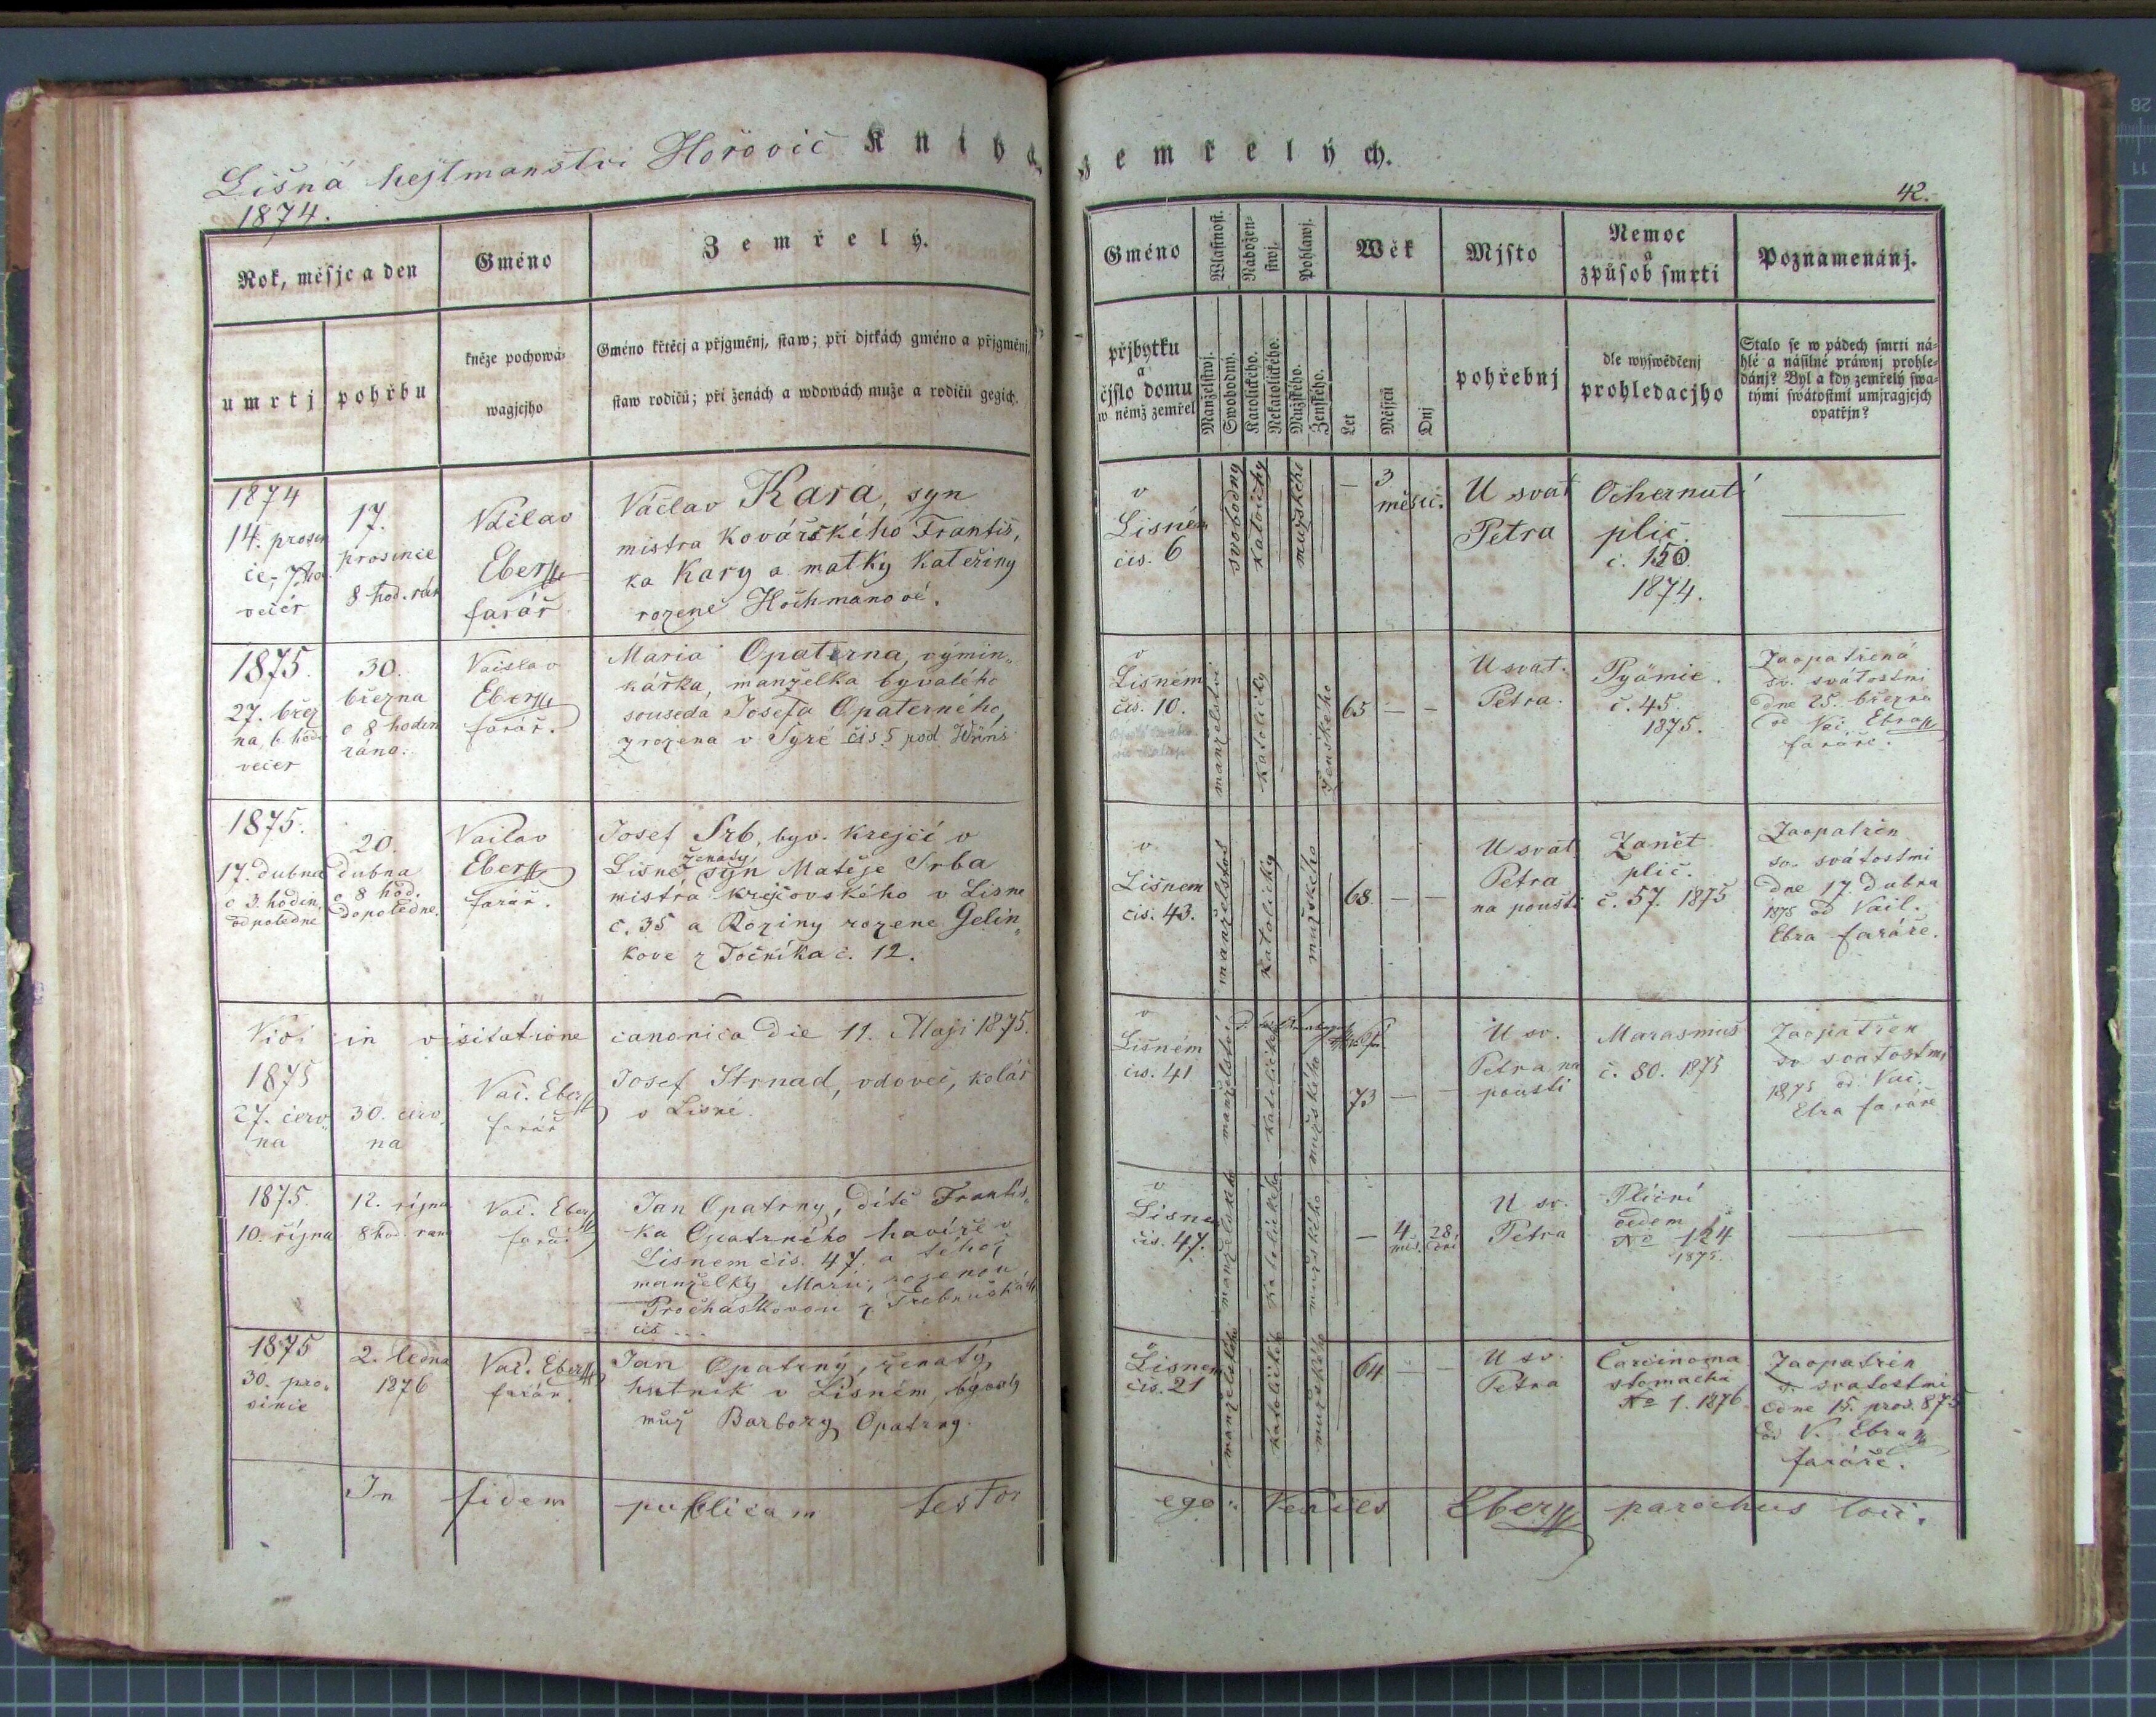 Lišná hejtmanství Hořovic Kniha zemřelých.
1874.
42.
Rok, měsjc a den
Gméno
Zemřelý.
Gméno
Wlastnost.
Nábožen-
stwj.
Pohlawj.
Wěk
Mjsto
Nemoc
a
způsob smrti
Poznamenánj.
umrtj
pohřbu
kněze pochowá-
wagjcjho
Gméno křtěcj a přjgměnj, staw; při djtkách gméno a přjgměnj,
staw rodičů; při ženách a wdowách muže a rodičů gegich.
přjbytku
a
čjslo domu
w němž zemřel
Manželstwj.
Swobodny.
Katolického.
Nekatolického.
Mužského.
Ženského.
Let
Měsjců
Dnj
pohřebnj
dle wyswědčenj
prohledacjho
Stalo se w pádech smrti ná-
hlé a násilné práwnj prohle-
dánj? Byl a kdy zemřelý swa-
tými swátostmi umjragjcjch
opatřjn?
1874
14. prosin
ce, 7 hod
večer
17.
prosince
8 hod. rán
Václav
Eber
farář
Václav Kara, syn
mistra kovářského Františ,
ka Kary a matky Kateřiny
rozené Hochmanové.
v
Lisném
čis. 6
svobodny
katolicky
mužského
— 3
měsíc.
U svat
Petra
Ochernutí
plic.
č. 150
1874.
—
1875.
27. břez
na, 6 hod.
večer
30.
března
o 8 hodin
ráno.
Vácslav
Eber
farář.
Maria Opaterna, výmin„
kářka, manželka byvalého
souseda Josefa Opaterného,
zrozena v Syré čis 5 pod
v
Lišném
čis. 10.
manzelství
katolicky
ženského
65 — —
U svat.
Petra.
Pyämie.
č. 45.
1875.
Zaopatřená
sv. svátostmi
dne 25. března
od Vác. Ebra
faráře.
1875.
17. dubna
o 3. hodin,
odpoledne
20.
dubna
o 8 hod.
dopoledne.
Václav
Eber
farář.
Josef Srb, byv. Krejčí v
Lisné ženatý, syn Matěje Srba
mistra krejčovského v Lisne
č. 35 a Roziny rozene Gelin„
kove z Točníka č. 12.
v
Lišnem
čis. 43.
manželstvi
katolicky
mužského
68. — —
U svat
Petra
na poušti
Zanět
plic.
č. 57. 1875
Zaopatřen
sv. svátostmi
dne 17. dubna
1875 od Václ.
Ebra faráře.
Vidi in visitatione canonica die 11. Maji 1875.
1875
27. červ„
na
30. červ„
na
Vác. Eber
farář
Josef Strnad, vdovec, kolář
v Lisné.
v
Lišném
čis. 41
manželství
katolicky
mužského
73 — —
U sv.
Petra na
poušti
Marasmus
č. 80. 1875
Zaopatřen
sv svatostmi
1875 od Vác.
Ebra faráře
1875
10. října
12. října
8 hod. rano
Vác. Eber
farář
Jan Opatrny, dítě Františ„
ka Opatrného havíře v
Lisnem čis. 47. a téhož
manželky Marii, rozenou
Procháskovou z
čis ...
v
Lisne
čis. 47.
katolického
mužského
— 4
měs. 28
dní
U sv.
Petra
Plicní
oedem
No 124
1875.
—
1875
30. pro„
since
2. ledna
1876
Vác. Eber
farář.
Jan Opatrný, ženatý,
hutník v Lisném, bývalý
muž Barbory Opatrny.
v
Lisnem
čis. 21
manželského
katolického
mužského
64 — —
U sv.
Petra
Carcinoma
stomachi
No 1. 1876.
Zaopatřen
sv. svatostmi
dne 15. pros. 875
od V. Ebra
faráře.
In fidem publicam testor
ego: Eber parochus loci.